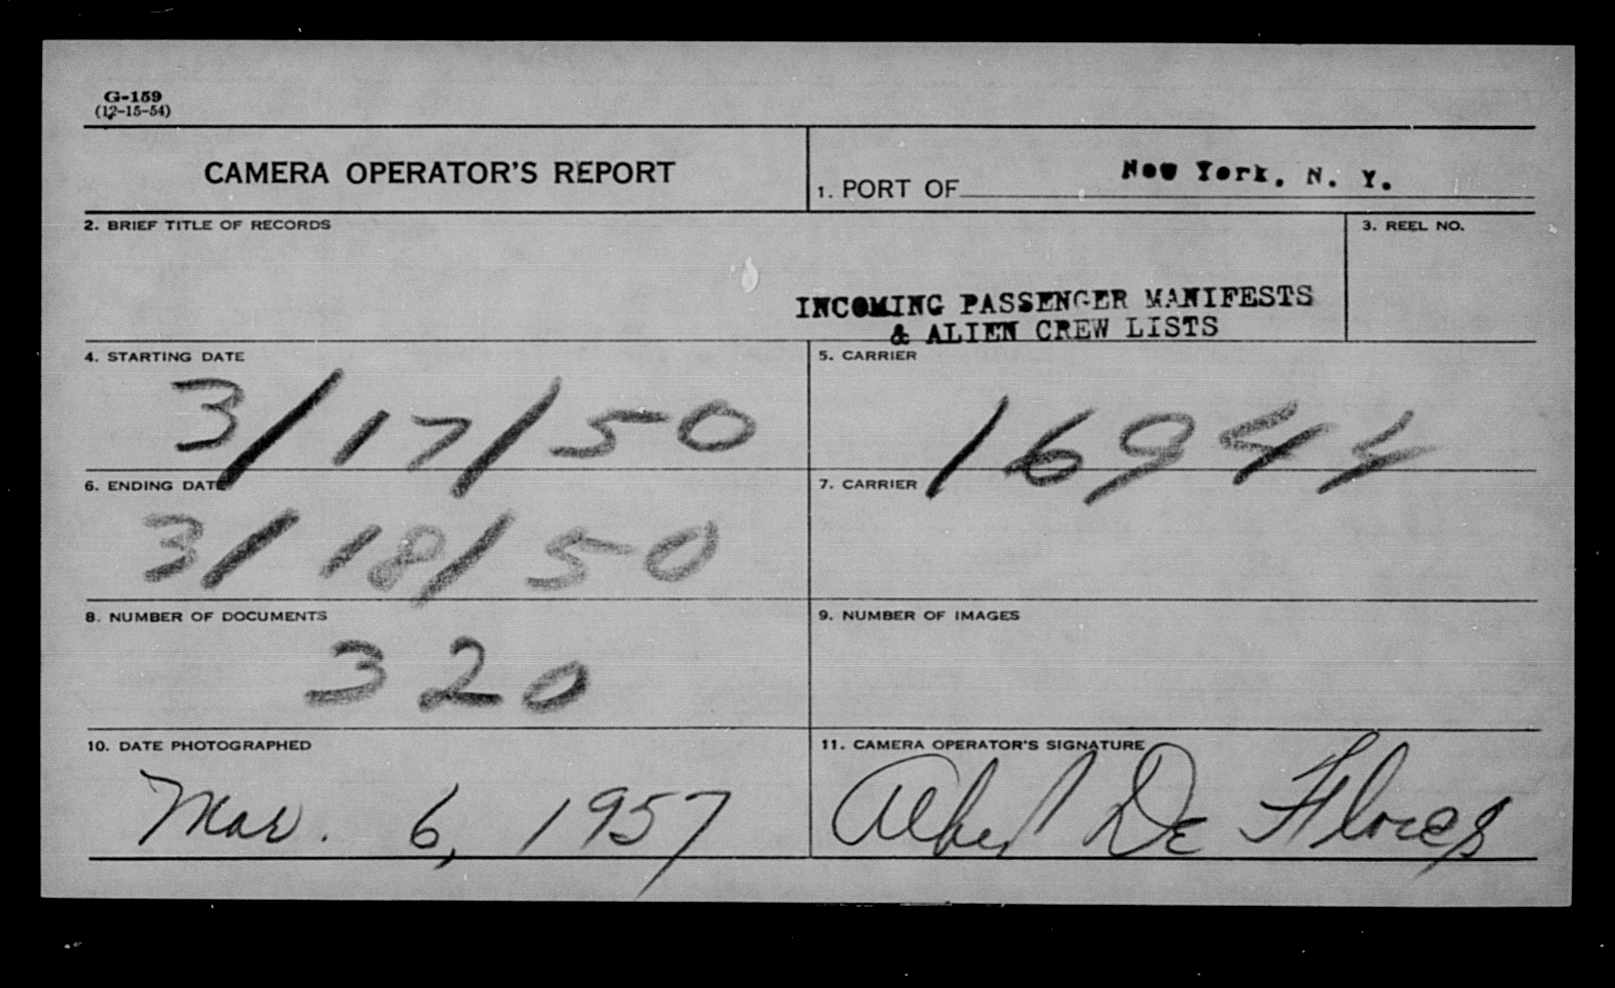 G-159
(12-15-54)
CAMERA OPERATOR'S REPORT
1. PORT OF New York, N. Y.
2. BRIEF TITLE OF RECORDS
INCOMING PASSENGER MANIFESTS
& ALIEN CREW LISTS
3. REEL NO.
4. STARTING DATE
3/17/50
5. CARRIER
16944
6. ENDING DATE
3/18/50
7. CARRIER
8. NUMBER OF DOCUMENTS
320
9. NUMBER OF IMAGES
10. DATE PHOTOGRAPHED
Mar. 6, 1957
11. CAMERA OPERATOR'S SIGNATURE
Albert De Flores